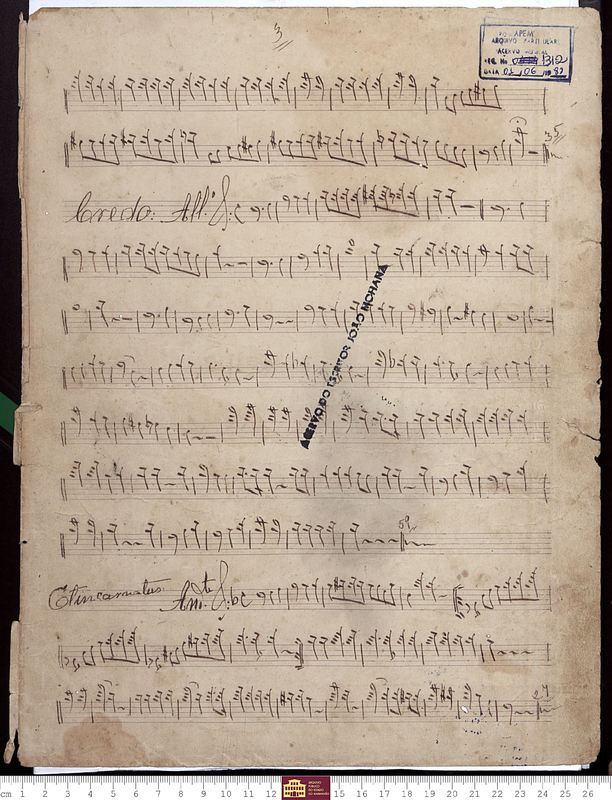 3
APEM
ARQUIVO PARTICULAR
ACERVO MUSICAL
1312
DATA 02, 06, 1987
35
Credo: All.º
ACERVO DO ESCRITOR JOÃO MOHANA
59
Et incarnatus And.te
27
cm 1 2 3 4 5 6 7 8 9 10 11 12 ARQUIVO PÚBLICO DO ESTADO DO MARANHÃO 15 16 17 18 19 20 21 22 23 24 25 26